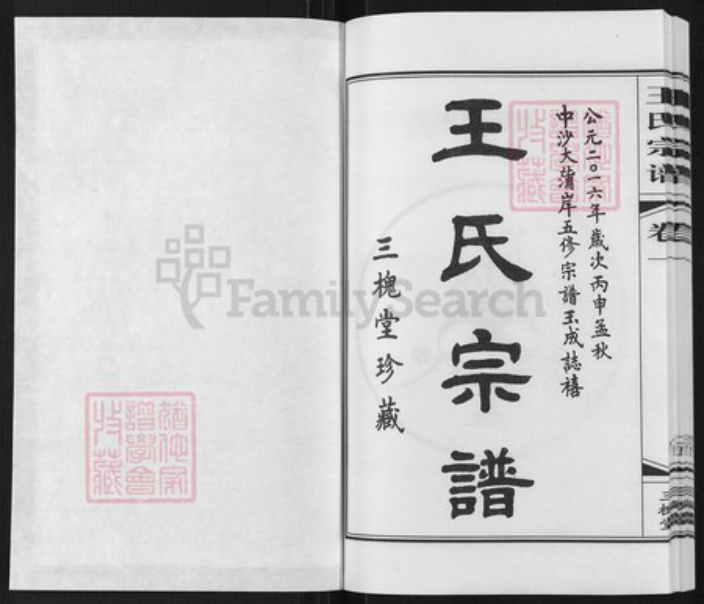 公元二〇一六年歲次丙申孟秋
中沙大蒲岸五修宗譜玉成誌禧
王氏宗譜
三槐堂珍藏
王氏宗谱
卷一
三槐堂
FamilySearch
譜學會
收藏